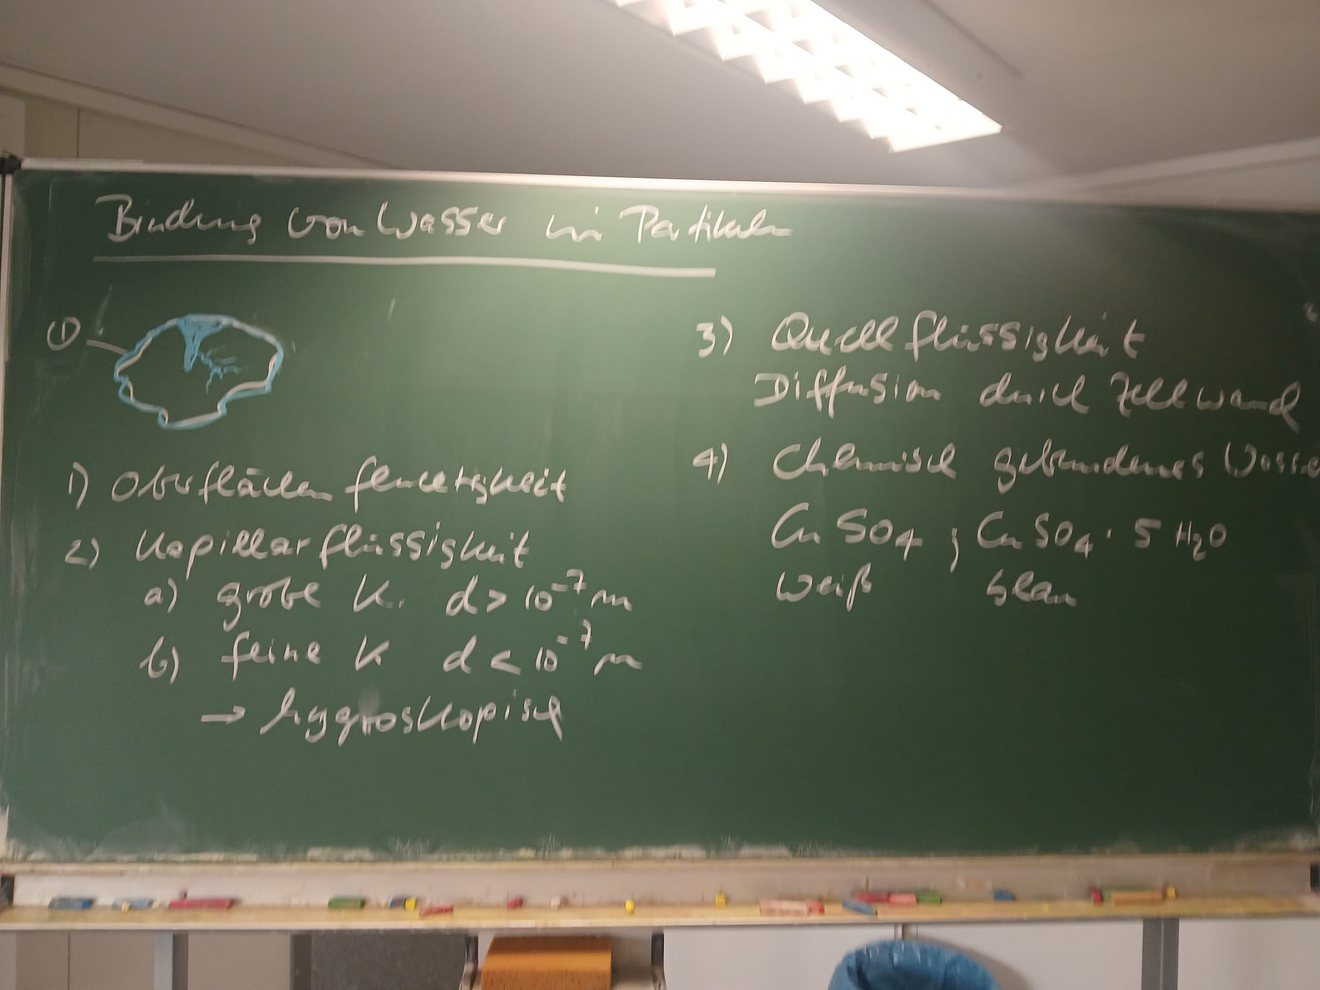 Bindung von Wasser in Partikeln
①
1) Oberflächenfeuchtigkeit
2) Kapillarflüssigkeit
a) grobe K. d > 10⁻⁷ m
b) feine K d < 10⁻⁷ m
→ hygroskopisch
3) Quellflüssigkeit
Diffusion durch Zellwand
4) Chemisch gebundenes Wasse
CuSO₄ ; CuSO₄ · 5 H₂O
weiß blau